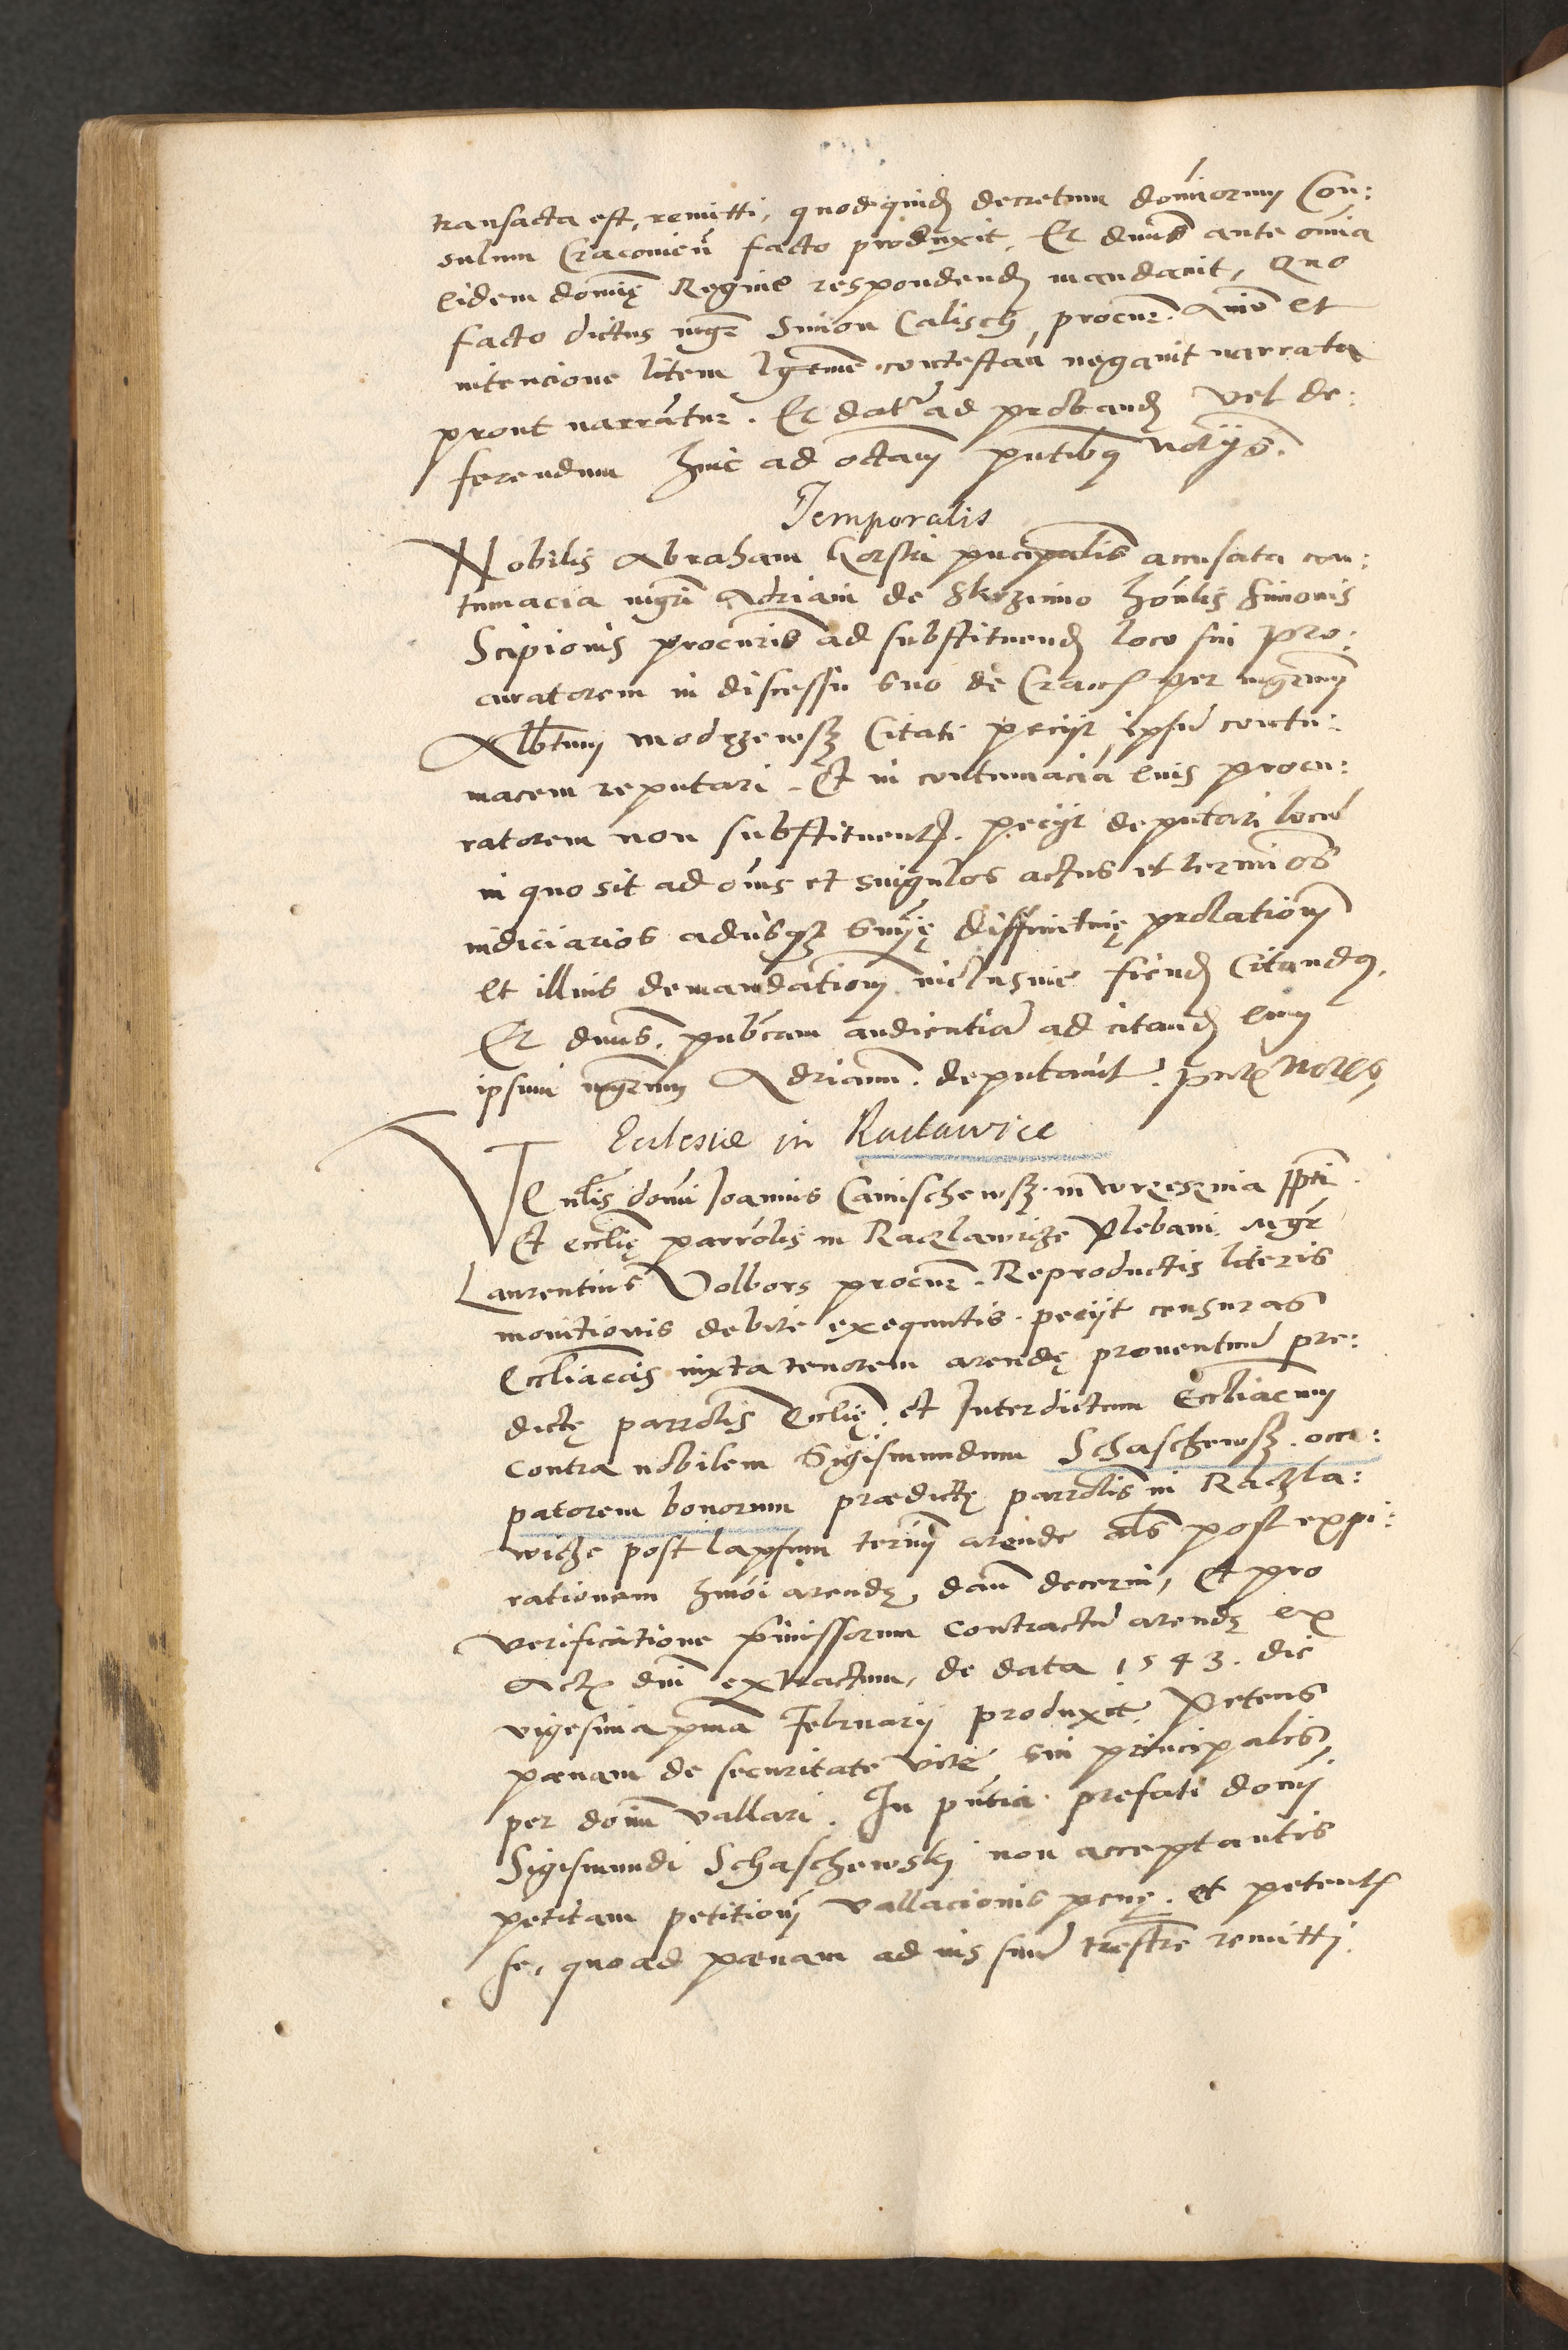 transacta est, remitti, quodquid decretum dominorum Con:
sulum Cracovien̄ facto produxit. Et dn̄us ante om̄ia
eidem domīnę Reginę respondend mandavit, Quo
facto dictus mgr Simon Calisch, procur. animo et
intencione litem contestan̄ negavit narrata
prout narrātur. Et datr ad proband vel de:
ferendum hinc ad octavā pn̄tibus notijs.
Temporalis
Nobilis Abraham principalis accusata con:
tumacia mgri Adriani de Skrzinno hon̄lis Simonis
Scipionis procuris ad substituend loco sui pro:
curatorem in discessu suo de Crac per mgrum
Albtum Modrzewsk Citati pecijt ipsū contu:
macem reputari. Et in contumaciā eius procu:
ratorem non substituent. pecijt deputari locū
in quo sit ad om̄s et singulos actus et termīos
iudiciarios adusqz snīę diffinitivę prolationem
et illius demandationem inclusive fiend Citandus.
Et dn̄us. publicam audientiā ad citand eum
ipsum mgrum Adrianū. deputavit. pntibus notijs
Ecclesiae in Racławice
Venlis domi Joannis Camischewsk in Wrzesznia ppti
Et ecclię parrolis in Raczlawicze Plebani. mgr
Laurentius Volbors procur. Reproductis literis
monitionis debite exequutis. pecijt censuras
Eccliacas iuxta tenorem arendę proventuū pre:
dictę parrolis Ecclię. et Interdictum Eccliacum
contra nobilem Sigismundum Schaschewsk. occu:
patorem bonorum praedictę parrolis in Raczla:
wicze post lapsum termi arende als post expi:
rationem hmōi arendę, dān decerni, Et pro
verificatione p̄missorum contractū arendę ex
Actis dni extractum, de data 1543. die
vigesima prima Februarij produxit. Petens
pœnam de securitate vitę sui principalis,
per dom̄ vallari. In pn̄tia prefati domī
Sigismundi Schaschewskj non acceptantis
petitam petitionem vallacionis penę. et petent
se, quoad pœnam ad ius suū trestre remitti.